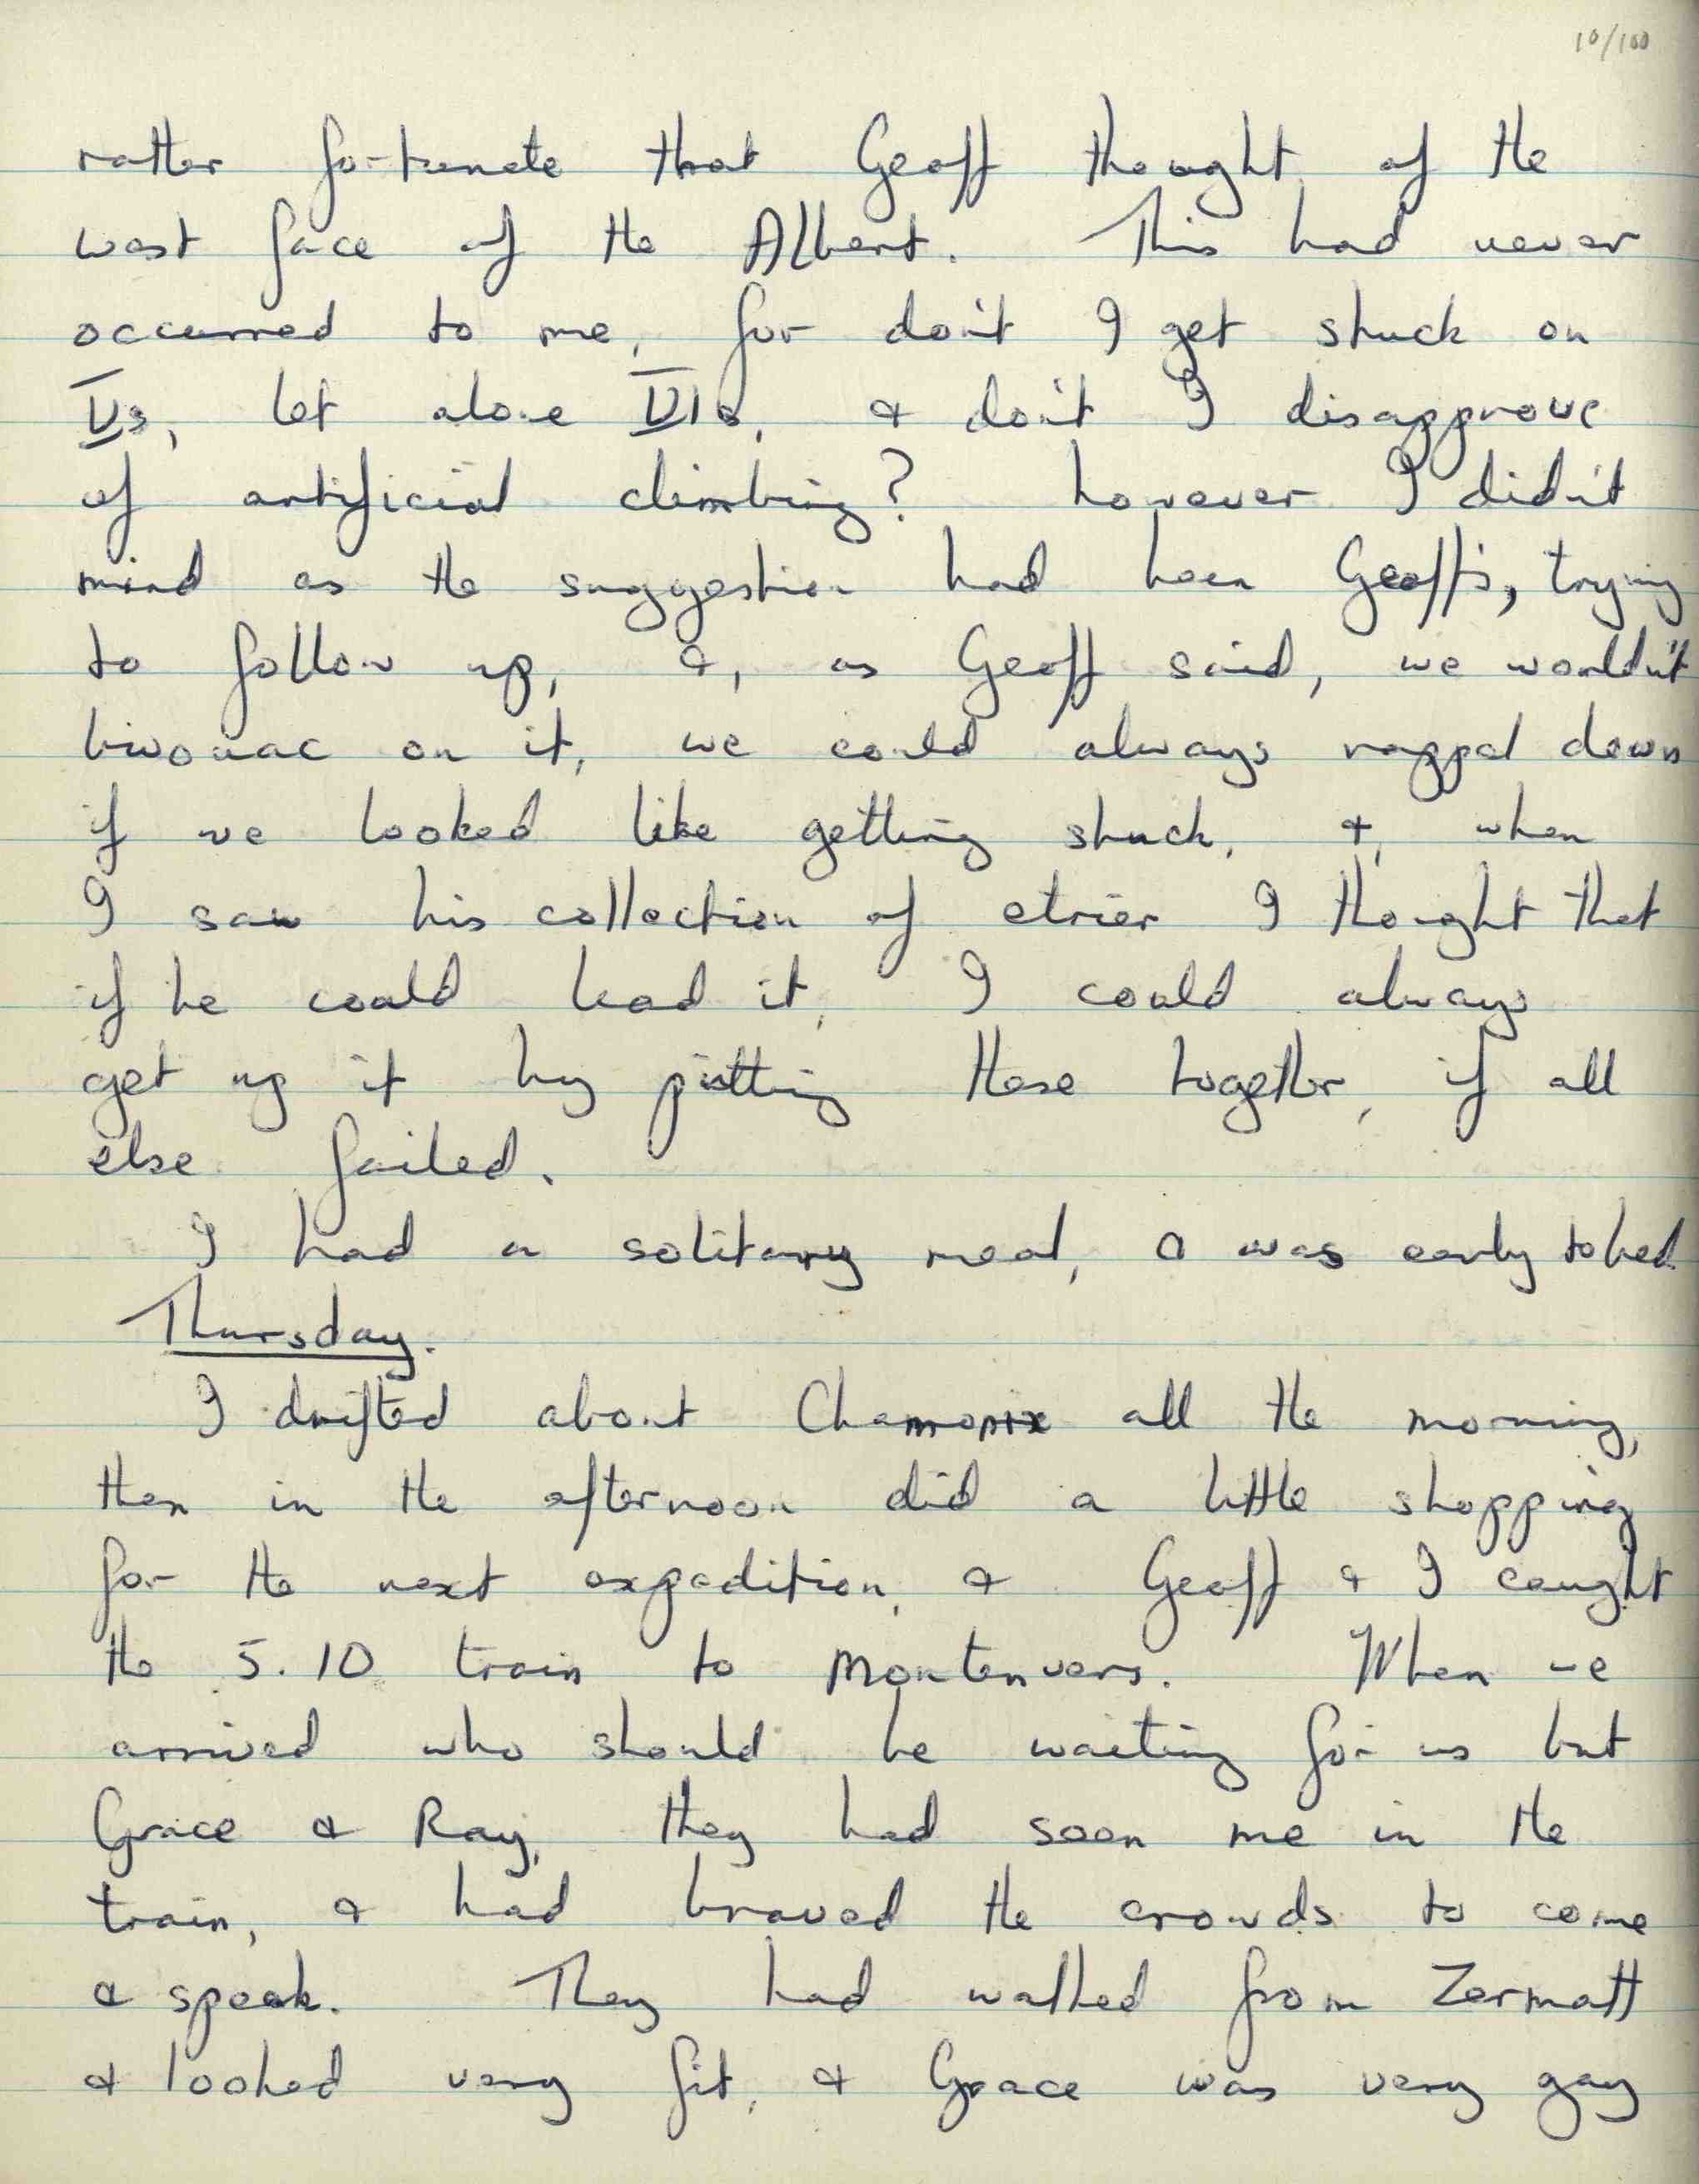 10/100
rather fortunate that Geoff thought of the
west face of the Albert. This had never
occurred to me, for don't I get stuck on
Vs, let alone VIs, & don't I disapprove
of artificial climbing? however I didn't
mind as the suggestion had been Geoff's, trying
to follow up, &, as Geoff said, we wouldn't
bivouac on it, we could always rappel down
if we looked like getting stuck, &, when
I saw his collection of etrier I thought that
if he could lead it, I could always
get up it by putting these together, if all
else failed.
I had a solitary meal, & was early to bed.
Thursday.
I drifted about Chamonix all the morning,
then in the afternoon did a little shopping
for the next expedition, & Geoff & I caught
the 5.10 train to Montenvers. When we
arrived who should be waiting for us but
Grace & Ray, they had seen me in the
train, & had braved the crowds to come
& speak. They had walked from Zermatt
& looked very fit, & Grace was very gay